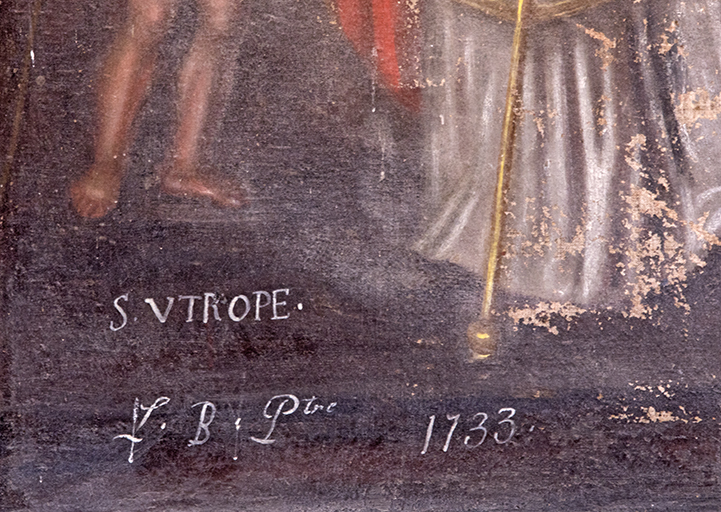 S. VTROPE.
f. B; Ptre 1733.